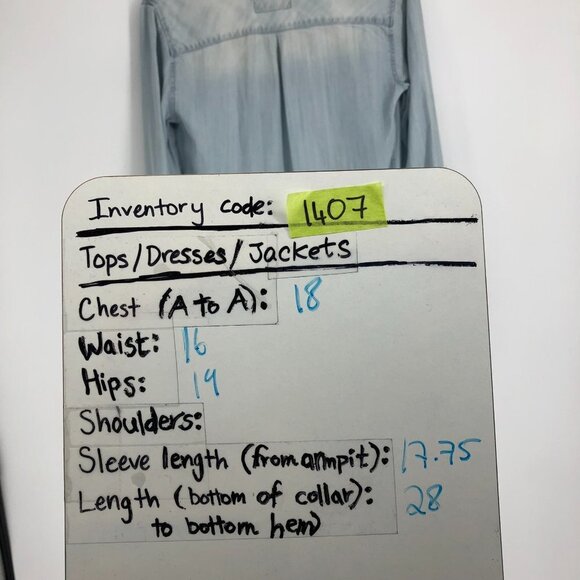 Inventory code: 1407
Tops/Dresses/Jackets
Chest (A to A): 18
Waist: 16
Hips: 19
Shoulders:
Sleeve length (from armpit): 17.75
Length (bottom of collar): 28
to bottom hem)